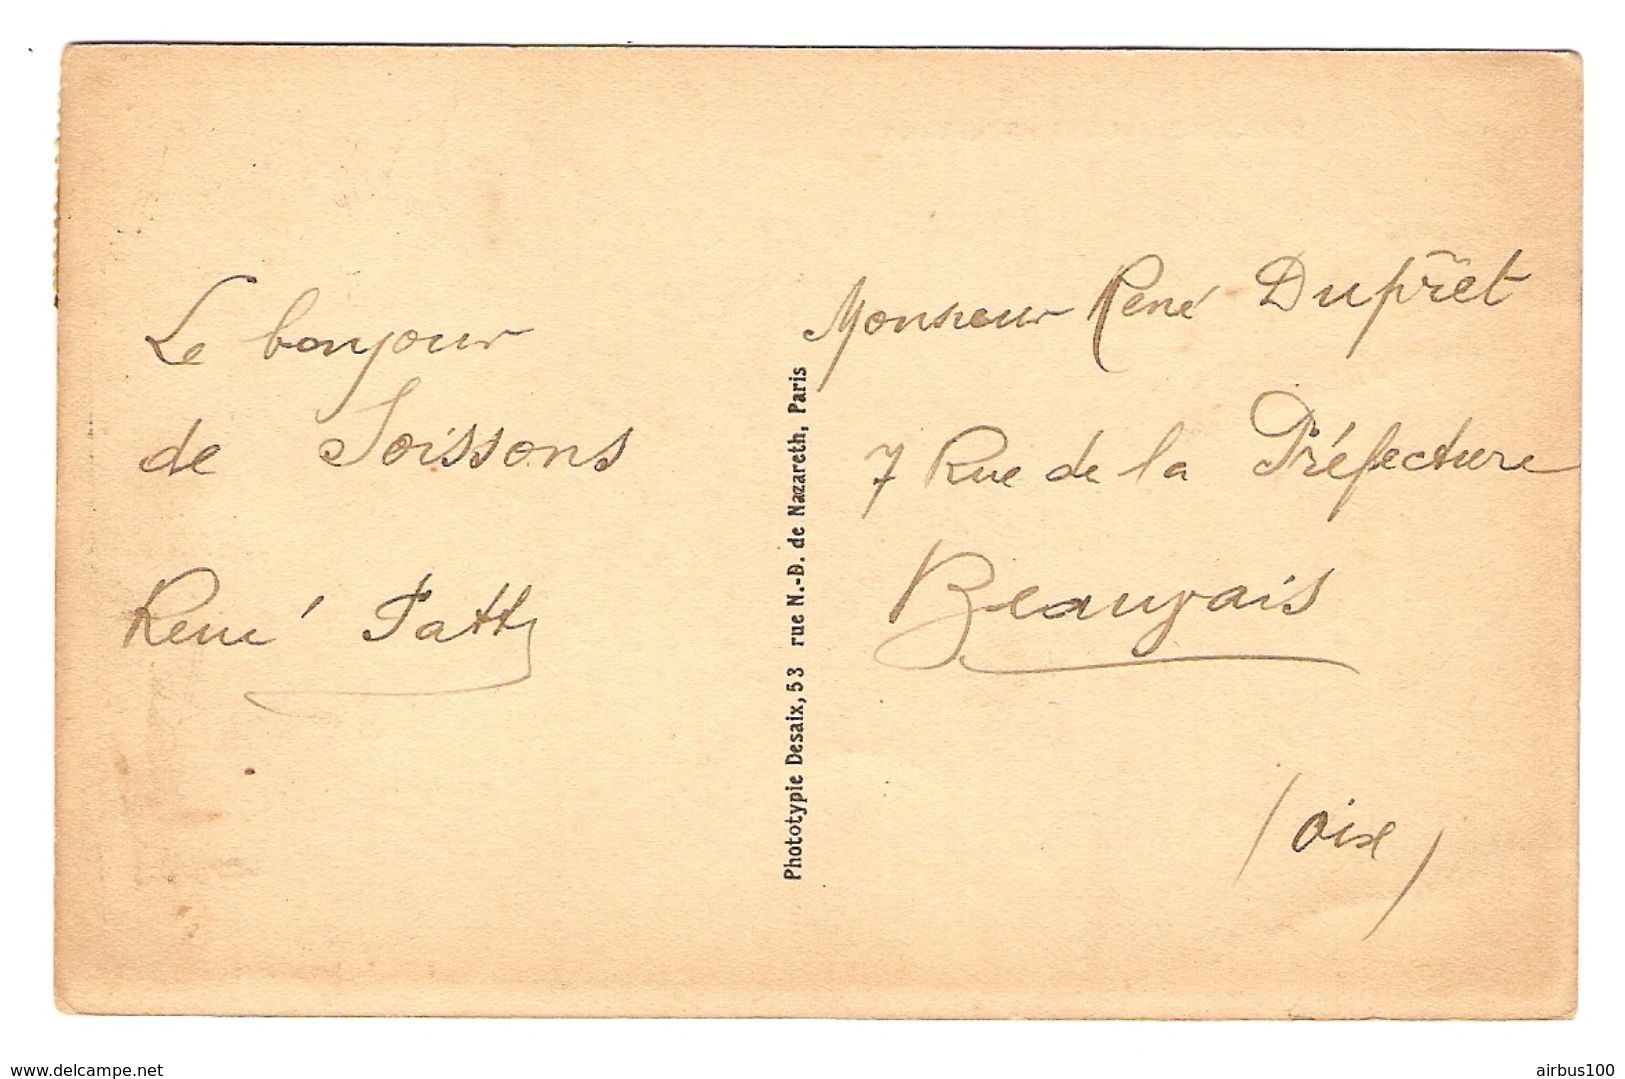 Le bonjour
de Soissons
René Patty
Phototypie Desaix, 53 rue N.-D. de Nazareth, Paris
Monsieur René Duprêt
7 Rue de la Préfecture
Beauvais
(oise)
www.delcampe.net
airbus100